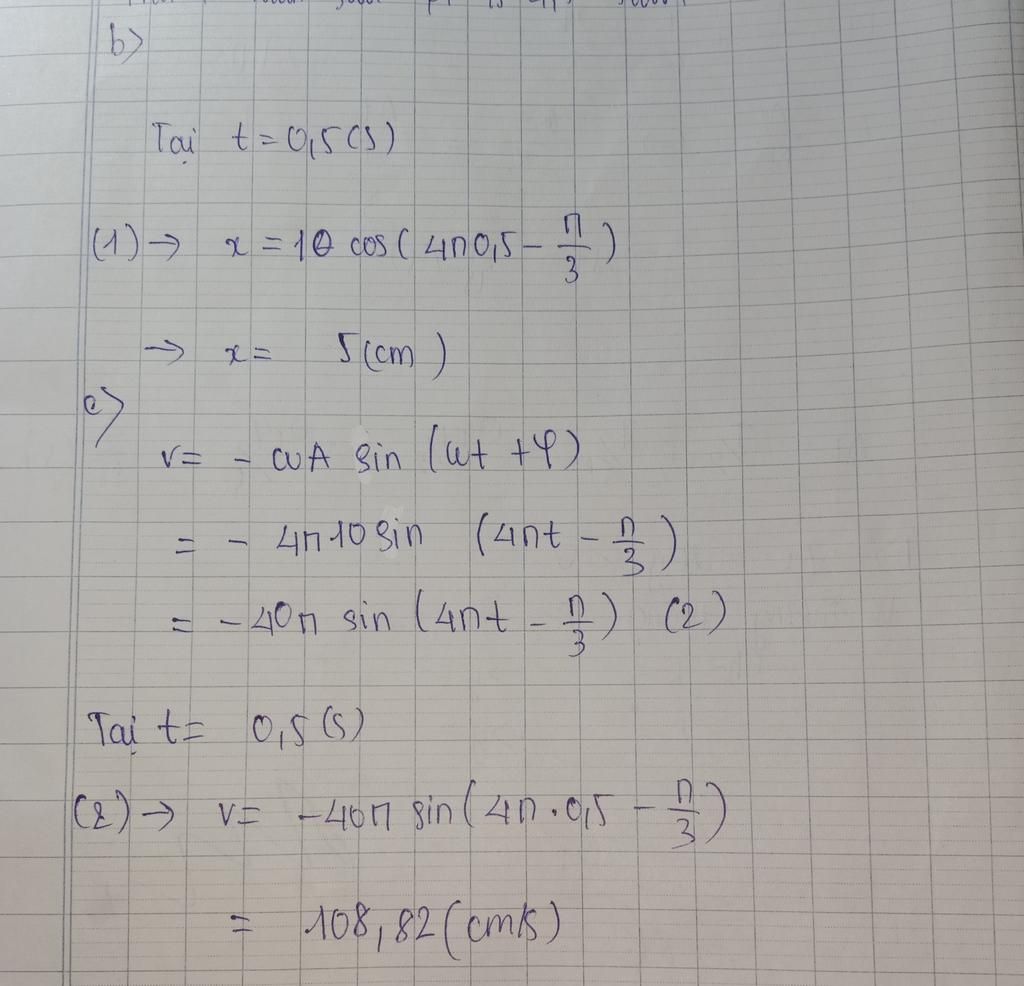 b)
Tại t = 0,5(s)
(1) → x = 10 cos( 4π0,5 - π/3 )
→ x = 5(cm)
c)
v = - ωA sin (ωt + φ)
= - 4π10 sin (4πt - π/3)
= - 40π sin (4πt - π/3) (2)
Tại t = 0,5(s)
(2) → v = -40π sin(4π.0,5 - π/3)
= 108,82(cm/s)